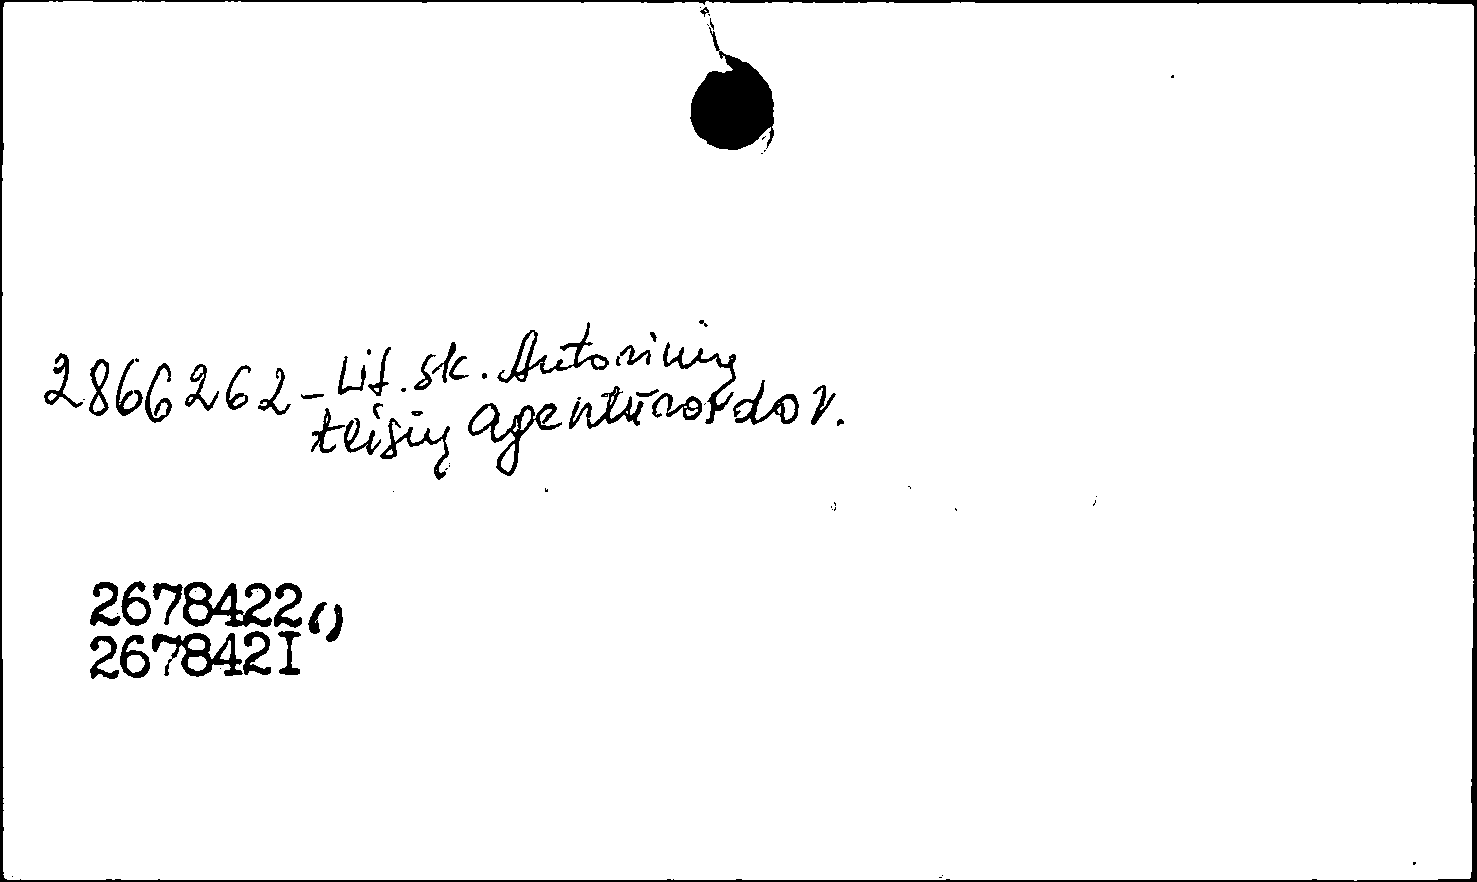 2866262 - Lit. sk. Autorinių
teisių agentūros dov.
2678422()
267842I